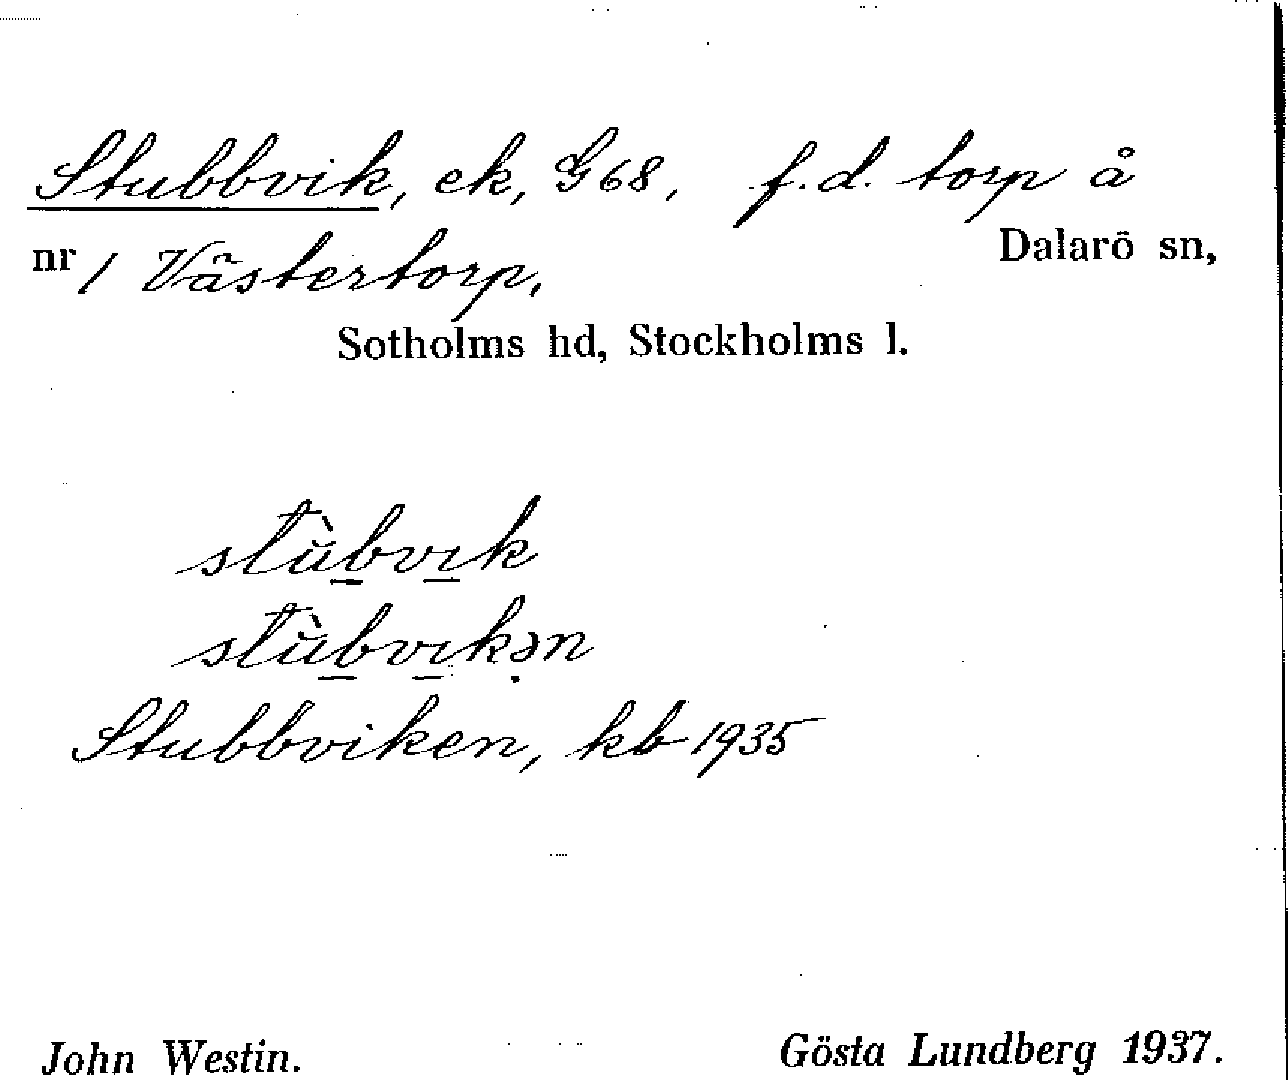 Stubbvik, ek, G68, f.d. torp å
nr 1 Västertorp, Dalarö sn,
Sotholms hd, Stockholms l.
stu̇̀bvık
stu̇̀bvıkən
Stubbviken, kb 1935
John Westin. Gösta Lundberg 1937.